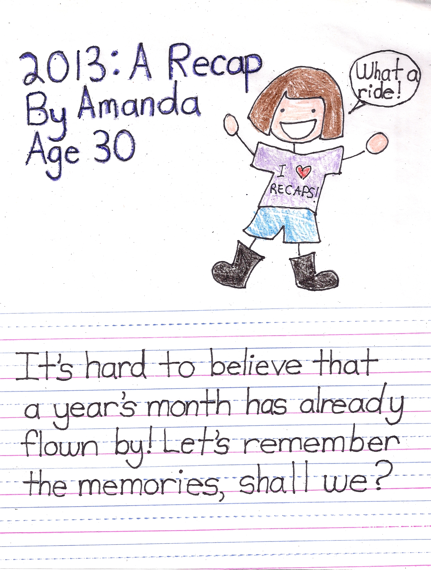 2013: A Recap
By Amanda
Age 30
What a
ride!
I ♥
RECAPS!
It's hard to believe that
a year's month has already
flown by! Let's remember
the memories, shall we?